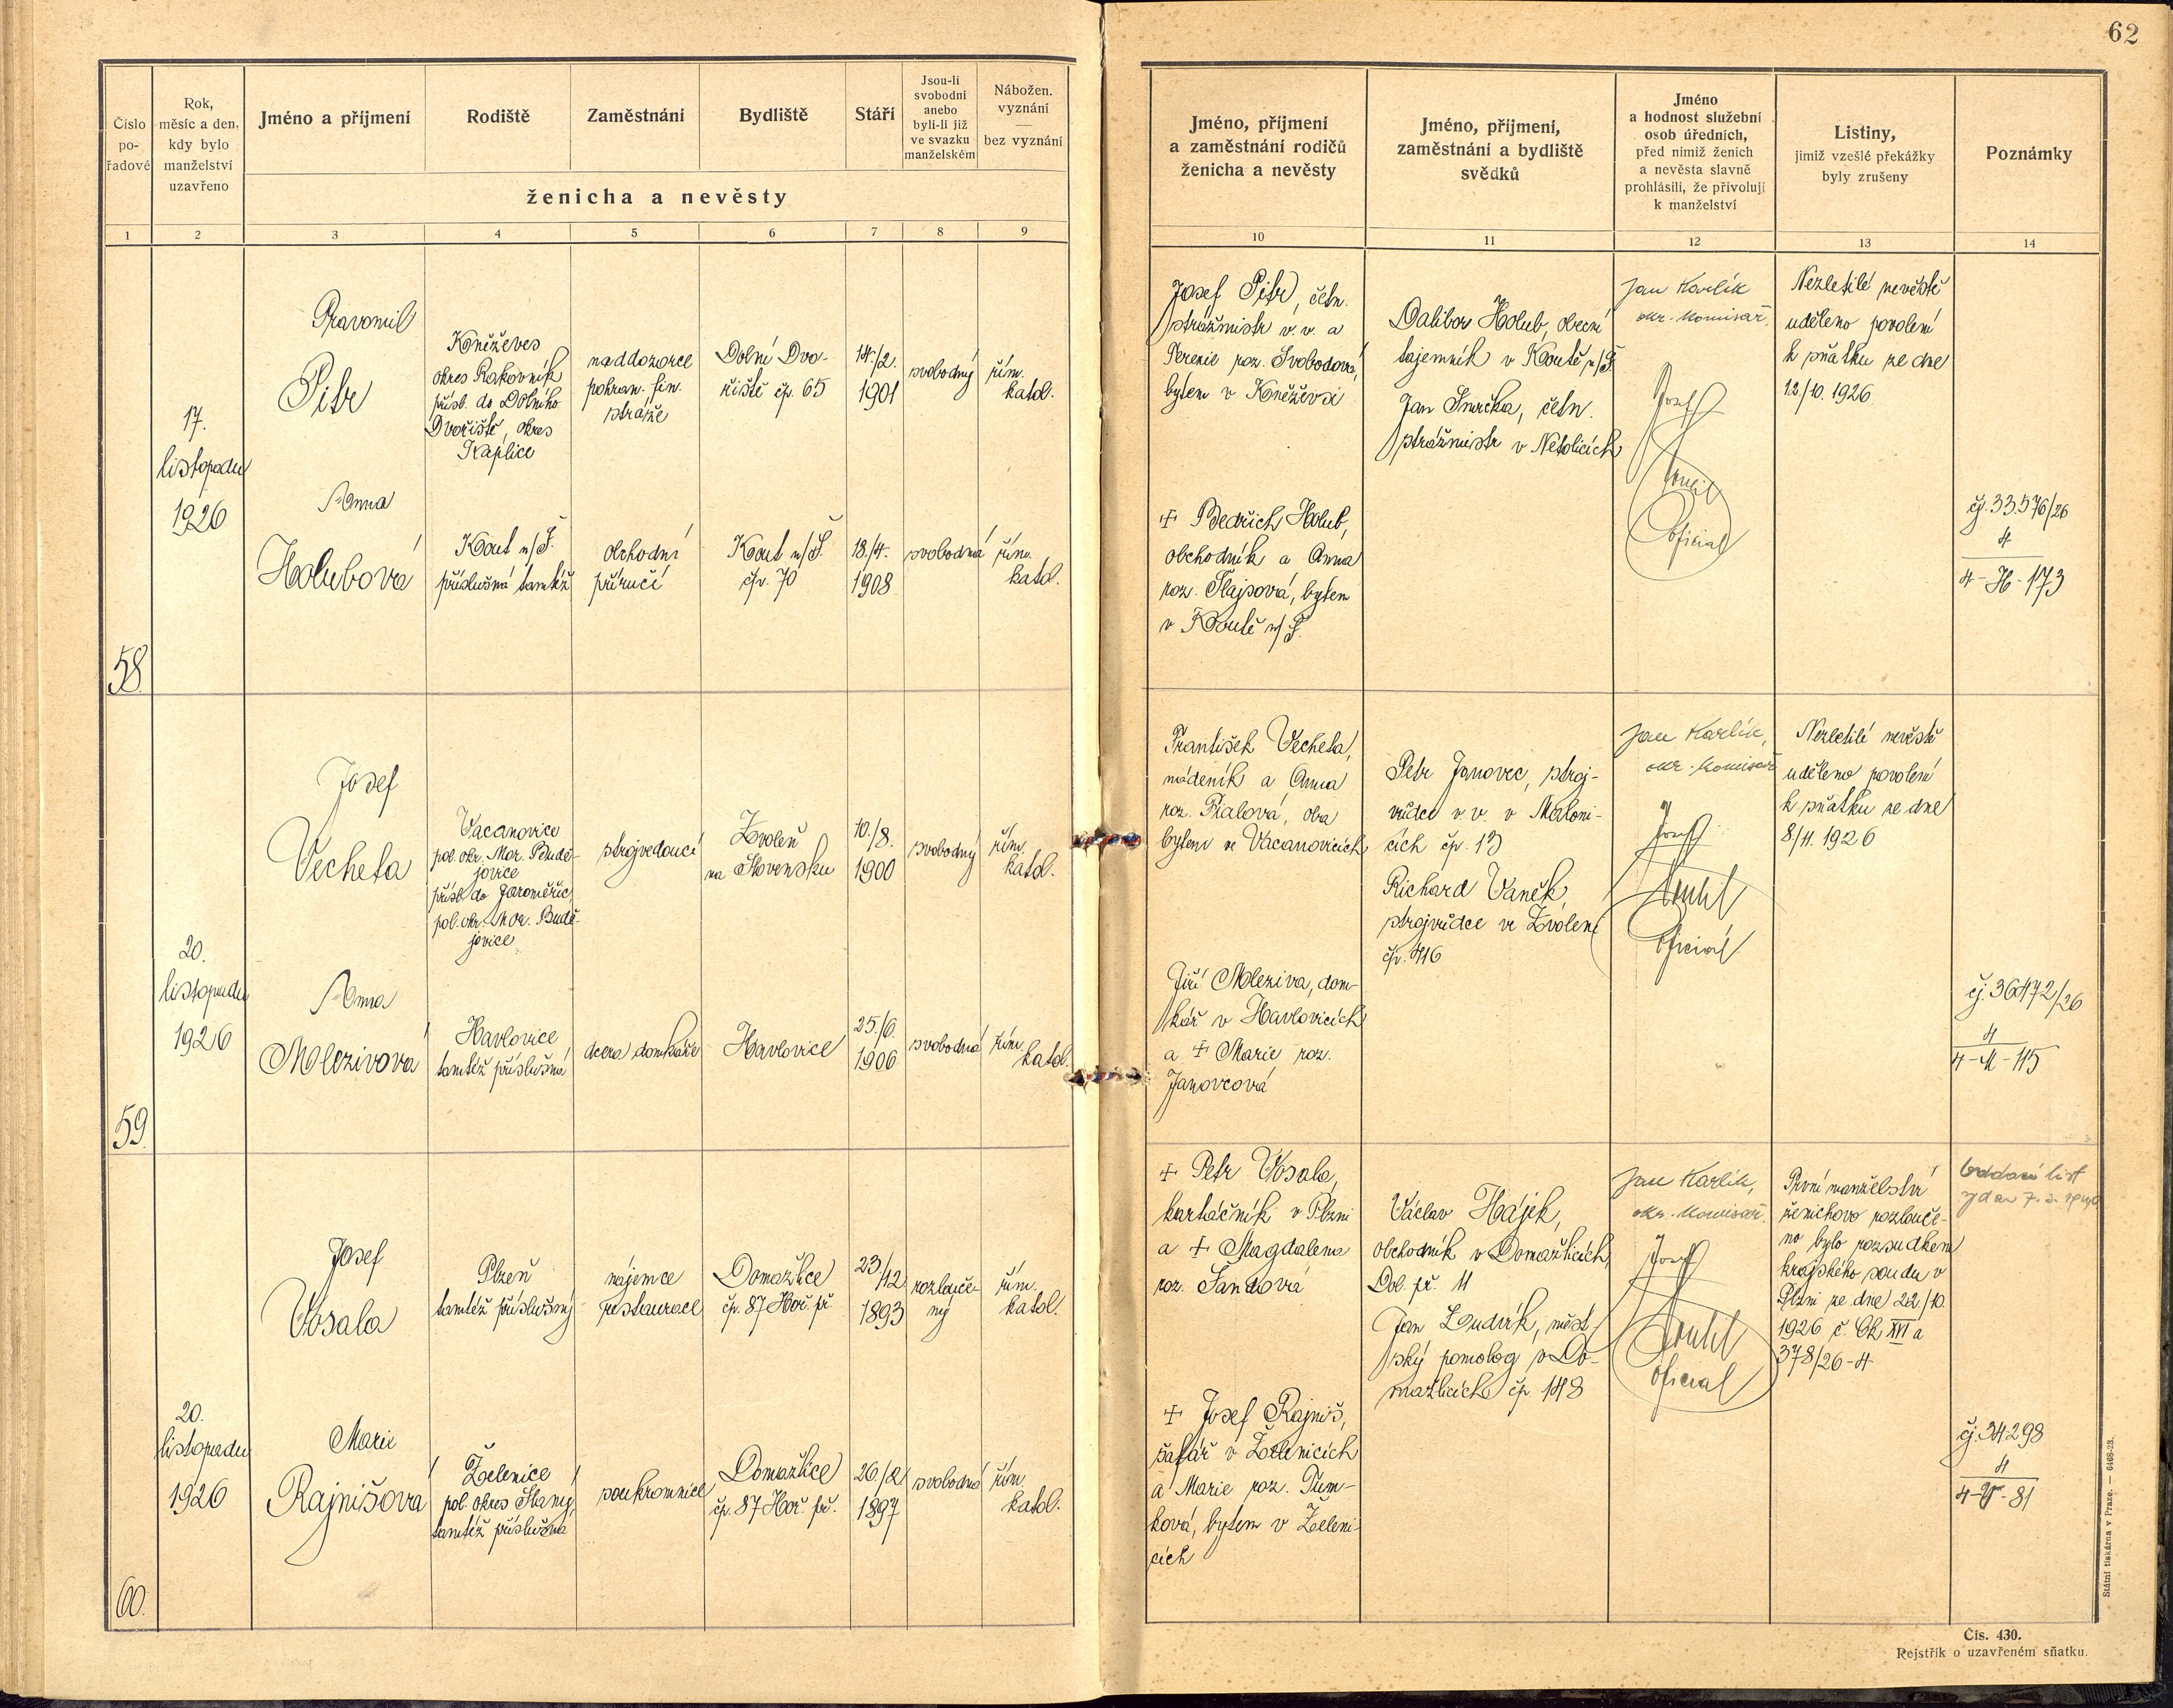 62
Číslo
po-
řadové
Rok,
měsíc a den,
kdy bylo
manželství
uzavřeno
Jméno a příjmení
Rodiště
Zaměstnání
Bydliště
Stáří
Jsou-li
svobodni
anebo
byli-li již
ve svazku
manželském
Nábožen.
vyznání
—
bez vyznání
ženicha a nevěsty
1 2 3 4 5 6 7 8 9
Jméno, příjmení
a zaměstnání rodičů
ženicha a nevěsty
Jméno, příjmení,
zaměstnání a bydliště
svědků
Jméno
a hodnost služební
osob úředních,
před nimiž ženich
a nevěsta slavně
prohlásili, že přivolují
k manželství
Listiny,
jimiž vzešlé překážky
byly zrušeny
Poznámky
10 11 12 13 14
58.
17.
listopadu
1926
Pravomil
Pitr
Kněževes
okres Rakovník
přísl. do Dolního
Dvořiště, okres
Kaplice
naddozorce
pohran. fin.
stráže
Dolní Dvo-
řiště čp. 65
14./2.
1901
svobodný
řím.
katol.
Anna
Holubová
Kout n/Š.
příslušná tamtéž
obchodní
příručí
Kout n/Š.
čp. 70
18./4.
1908
svobodná
řím.
katol.
Josef Pitr, četn.
strážmistr v. v. a
Terezie roz. Svobodová,
bytem v Kněževsi
+ Bedřich Holub,
obchodník a Anna
roz. Šlajsová, bytem
v Koutě n/Š.
Dalibor Holub, obecní
tajemník v Koutě n/Š
Jan Smrčka, četn.
strážmistr v Netolicích
Jan Karlík
okr. komisař.
Josef
oficial
Nezletilé nevěstě
uděleno povolení
k sňatku ze dne
12/10. 1926
čj. 33576/26
4
4-H-173
59.
20.
listopadu
1926
Josef
Vecheta
Vacanovice
pol. okr. Mor. Budě-
jovice
přísl. do Jaroměřic,
pol. okr. Mor. Budě-
jovice
strojvedoucí
Zvoleň
na Slovensku
10./8.
1900
svobodný
řím.
katol.
Anna
Mlezivová
Havlovice,
tamtéž příslušná
dcera domkáře
Havlovice
25./6.
1906
svobodná
řím.
katol.
František Vecheta,
nádeník a Anna
roz. Fialová, oba
bytem ve Vacanovicích
Jiří Mleziva, dom-
kář v Havlovicích
a + Marie roz.
Janovcová
Petr Janovec, stroj-
vůdce v. v. v Meloni-
cích čp. 13
Richard Vaněk,
strojvůdce ve Zvoleni
čp. 416
Jan Karlík,
okr. komisař
Josef
oficiál
Nezletilé nevěstě
uděleno povolení
k sňatku ze dne
8/11. 1926
čj. 36472/26
4
4-M-115
60.
20.
listopadu
1926
Josef
Vosala
Plzeň
tamtéž příslušný
nájemce
restaurace
Domažlice
čp. 87 Hoř. př.
23./12
1893
rozlouče-
ný
řím.
katol.
Marie
Rajnišová
Želenice
pol. okres Slaný,
tamtéž příslušná
soukromnice
Domažlice
čp. 87 Hoř. př.
26./2
1897
svobodná
řím.
katol.
+ Petr Vosala,
kartáčník v Plzni
a + Magdalena
roz. Šandová
+ Josef Rajniš,
šafář v Želenicích
a Marie roz. Tům-
ková, bytem v Želeni-
cích
Václav Hájek,
obchodník v Domažlicích,
Dol. př. 11
Jan Ludvík, měst-
ský pomolog v Do-
mažlicích čp. 148
Jan Karlík,
okr. komisař.
Josef
oficial
První manželství
ženichovo rozlouče-
no bylo rozsudkem
krajského soudu v
Plzni ze dne 22/10.
1926 č. Ck XVI a
378/26-4
Oddací list
čj. 34298
4
4-V-81
Státní tiskárna v Praze. — 6468-23.
Čís. 430.
Rejstřík o uzavřeném sňatku.